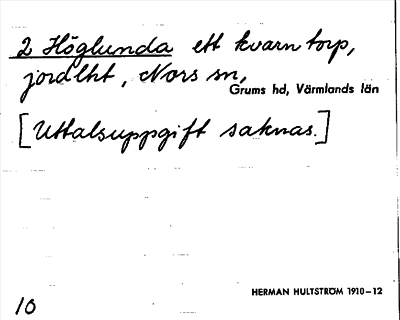 2 Höglunda ett kvarn torp,
jordlht, Nors sn,
Grums hd, Värmlands län
[Uttalsuppgift saknas.]
HERMAN HULTSTRÖM 1910–12
10